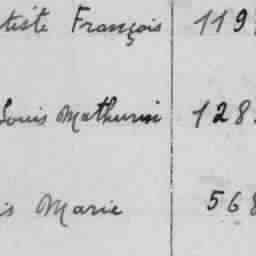 tiste François 119
Louis Mathurin 128
is Marie 568